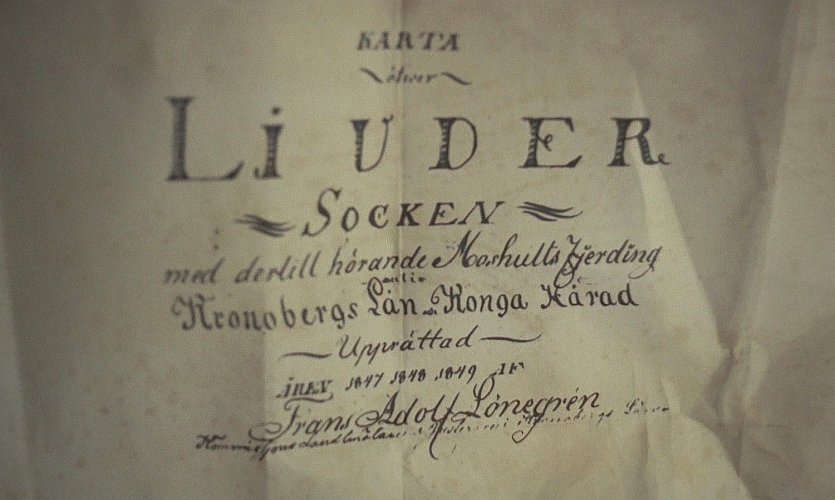 KARTA
öfwer
LiUDER
SOCKEN
med dertill hörande Moshults Fjerding
Kronobergs Län Konga Härad
Upprättad
ÅREN 1847 1848 1849 AF
Frans Adolf Lönegrén
Kommissions Landtmätare